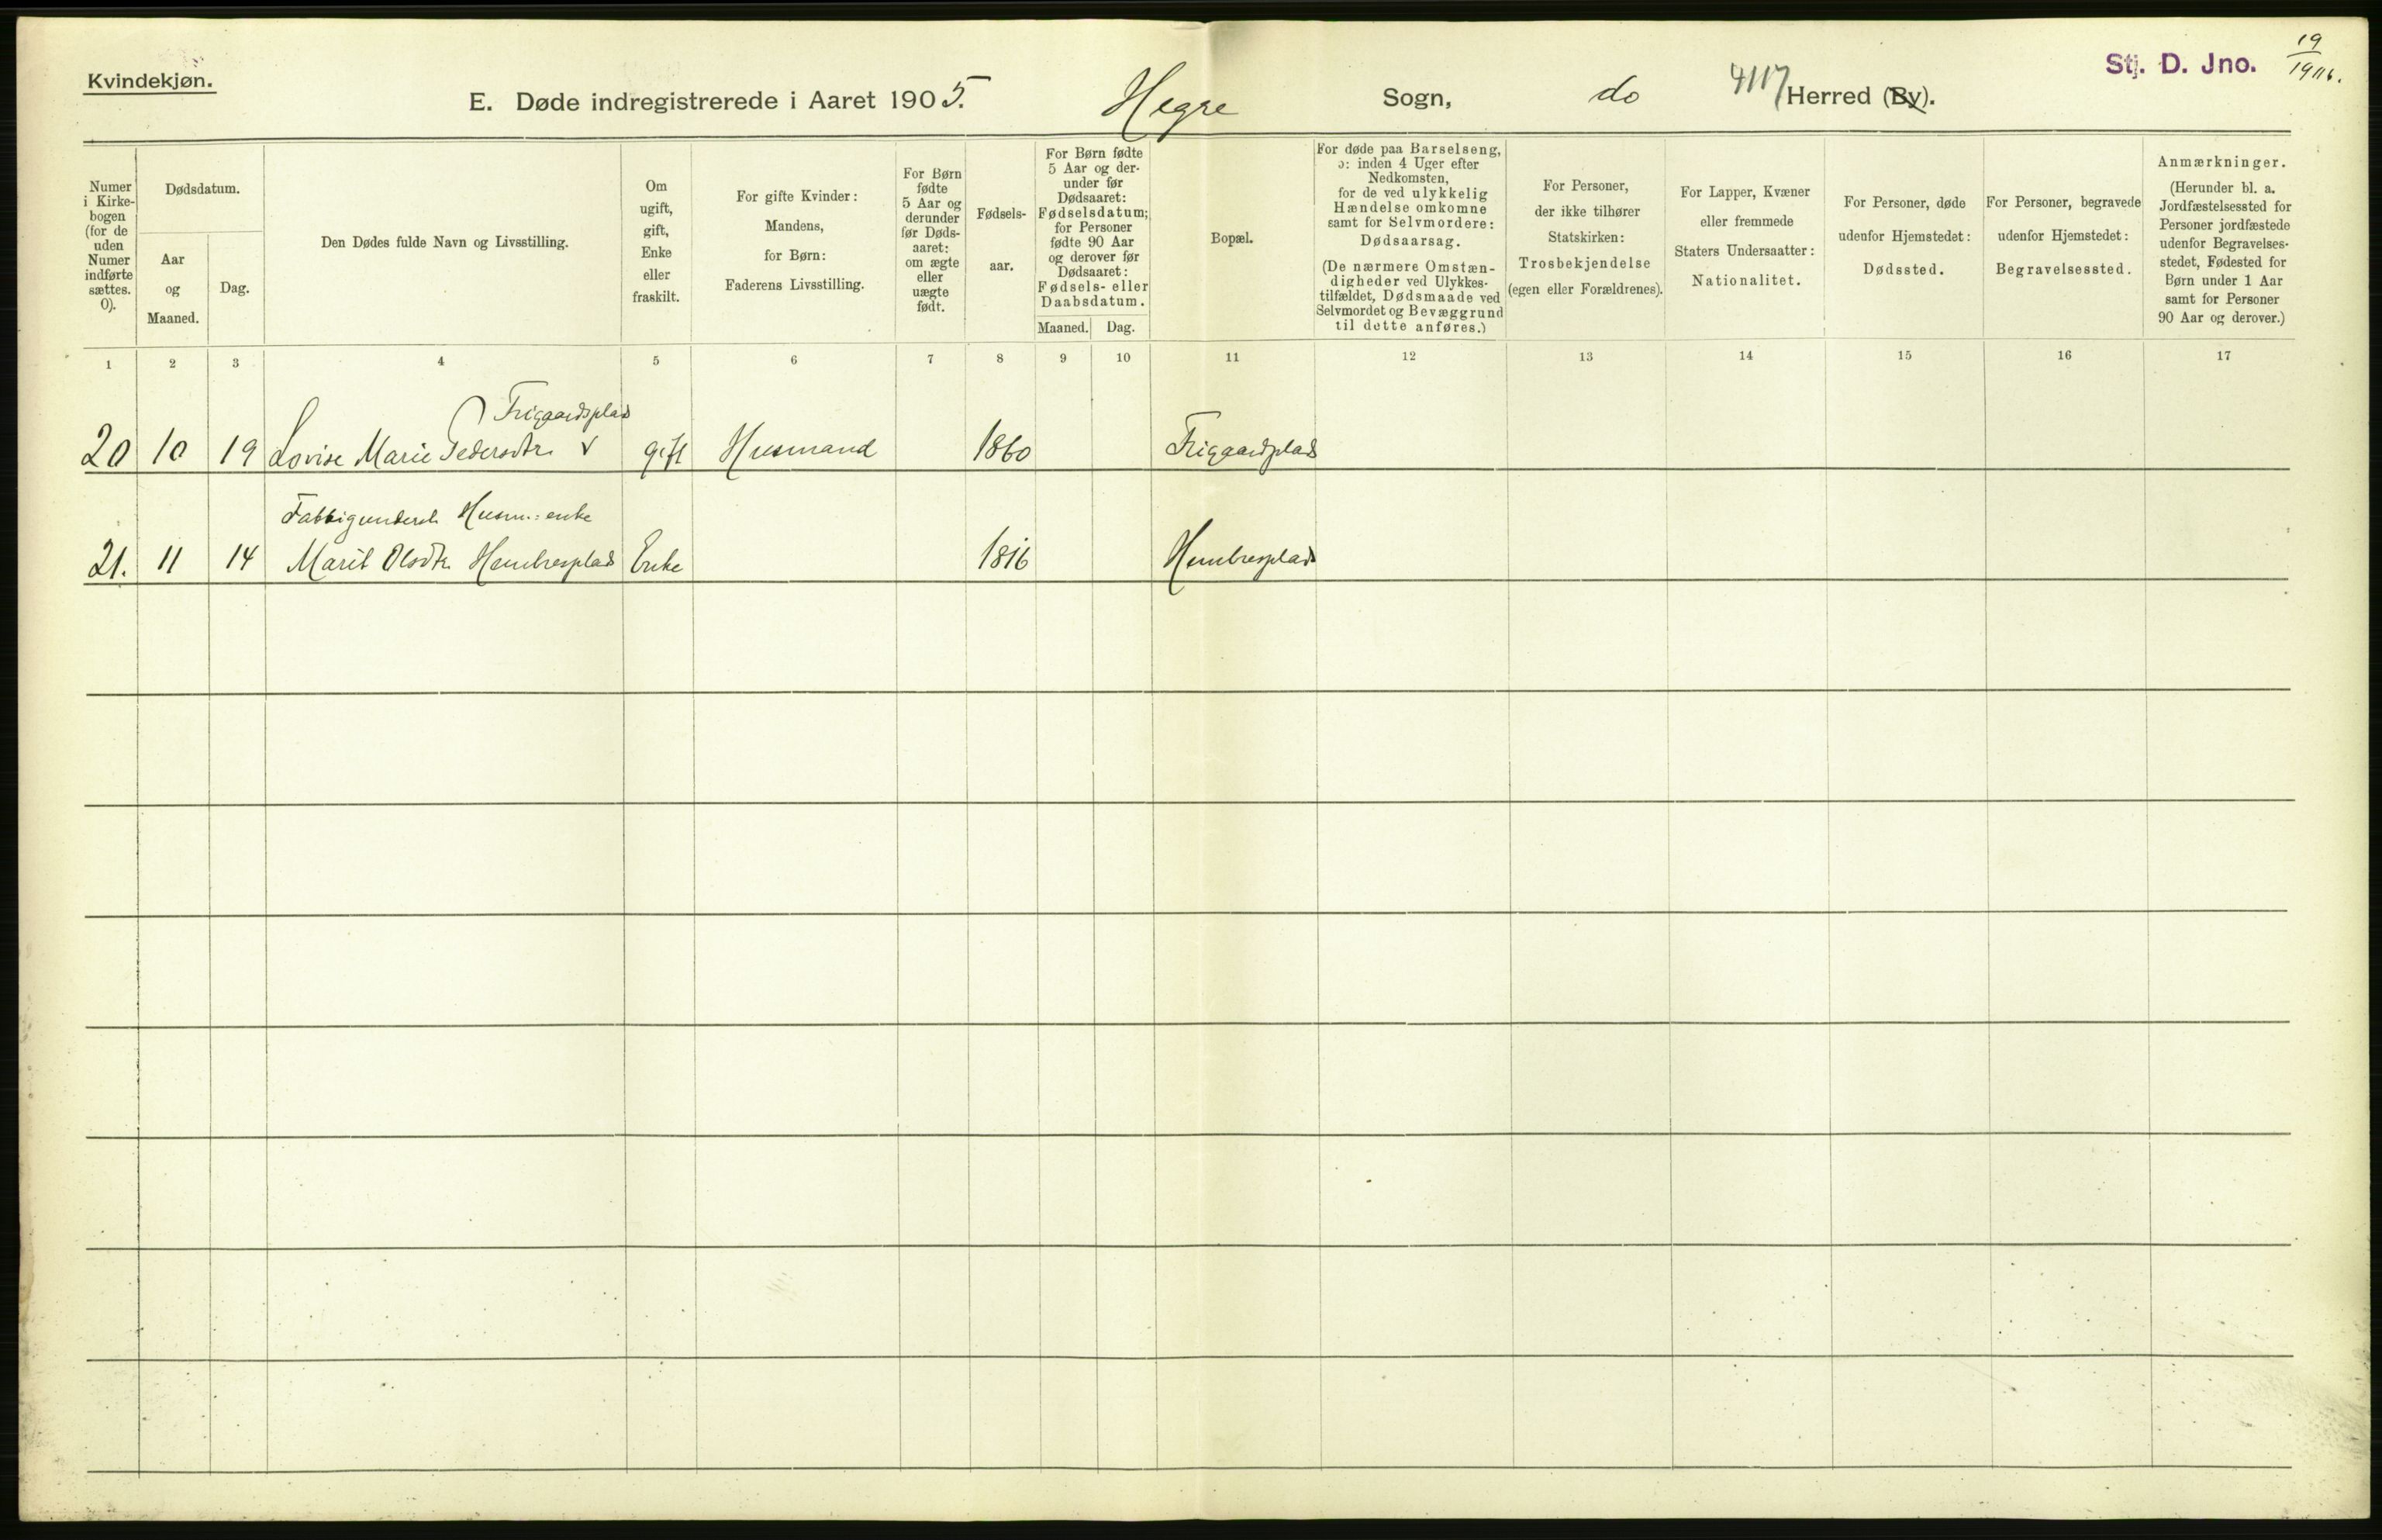 Kvindekjøn.
E. Døde indregistrerede i Aaret 1905. Hegre Sogn, do 4117 Herred (By).
Stj. D. Jno. 19/1906.
Numer
i Kirke-
bogen
(for de
uden
Numer
indførte
sættes.
0).
Dødsdatum.
Aar
og
Maaned.
Dag.
Den Dødes fulde Navn og Livsstilling.
Om
ugift,
gift,
Enke
eller
fraskilt.
For gifte Kvinder:
Mandens,
for Børn:
Faderens Livsstilling.
For Børn
fødte
5 Aar og
derunder
før Døds-
aaret:
om ægte
eller
uægte
født.
Fødsels-
aar.
For Børn fødte
5 Aar og der-
under før
Dødsaaret:
Fødselsdatum;
for Personer
fødte 90 Aar
og derover før
Dødsaaret:
Fødsels- eller
Daabsdatum.
Maaned. Dag.
Bopæl.
For døde paa Barselseng,
ɔ: inden 4 Uger efter
Nedkomsten,
for de ved ulykkelig
Hændelse omkomne
samt for Selvmordere:
Dødsaarsag.
(De nærmere Omstæn-
digheder ved Ulykkes-
tilfældet, Dødsmaade ved
Selvmordet og Bevæggrund
til dette anføres.)
For Personer,
der ikke tilhører
Statskirken:
Trosbekjendelse
(egen eller Forældrenes).
For Lapper, Kvæner
eller fremmede
Staters Undersaatter:
Nationalitet.
For Personer, døde
udenfor Hjemstedet:
Dødssted.
For Personer, begravede
udenfor Hjemstedet:
Begravelsessted.
Anmærkninger.
(Herunder bl. a.
Jordfæstelsessted for
Personer jordfæstede
udenfor Begravelses-
stedet, Fødested for
Børn under 1 Aar
samt for Personer
90 Aar og derover.)
1 2 3 4 5 6 7 8 9 10 11 12 13 14 15 16 17
Frigaardsplads
20 10 19 Lovise Marie Pedersdtr. gift Husmand 1860 Frigaardplads
Fattigunderst. Husm.: enke
21. 11 14 Marit Olsdtr. Hembresplads Enke 1816 Hembresplads